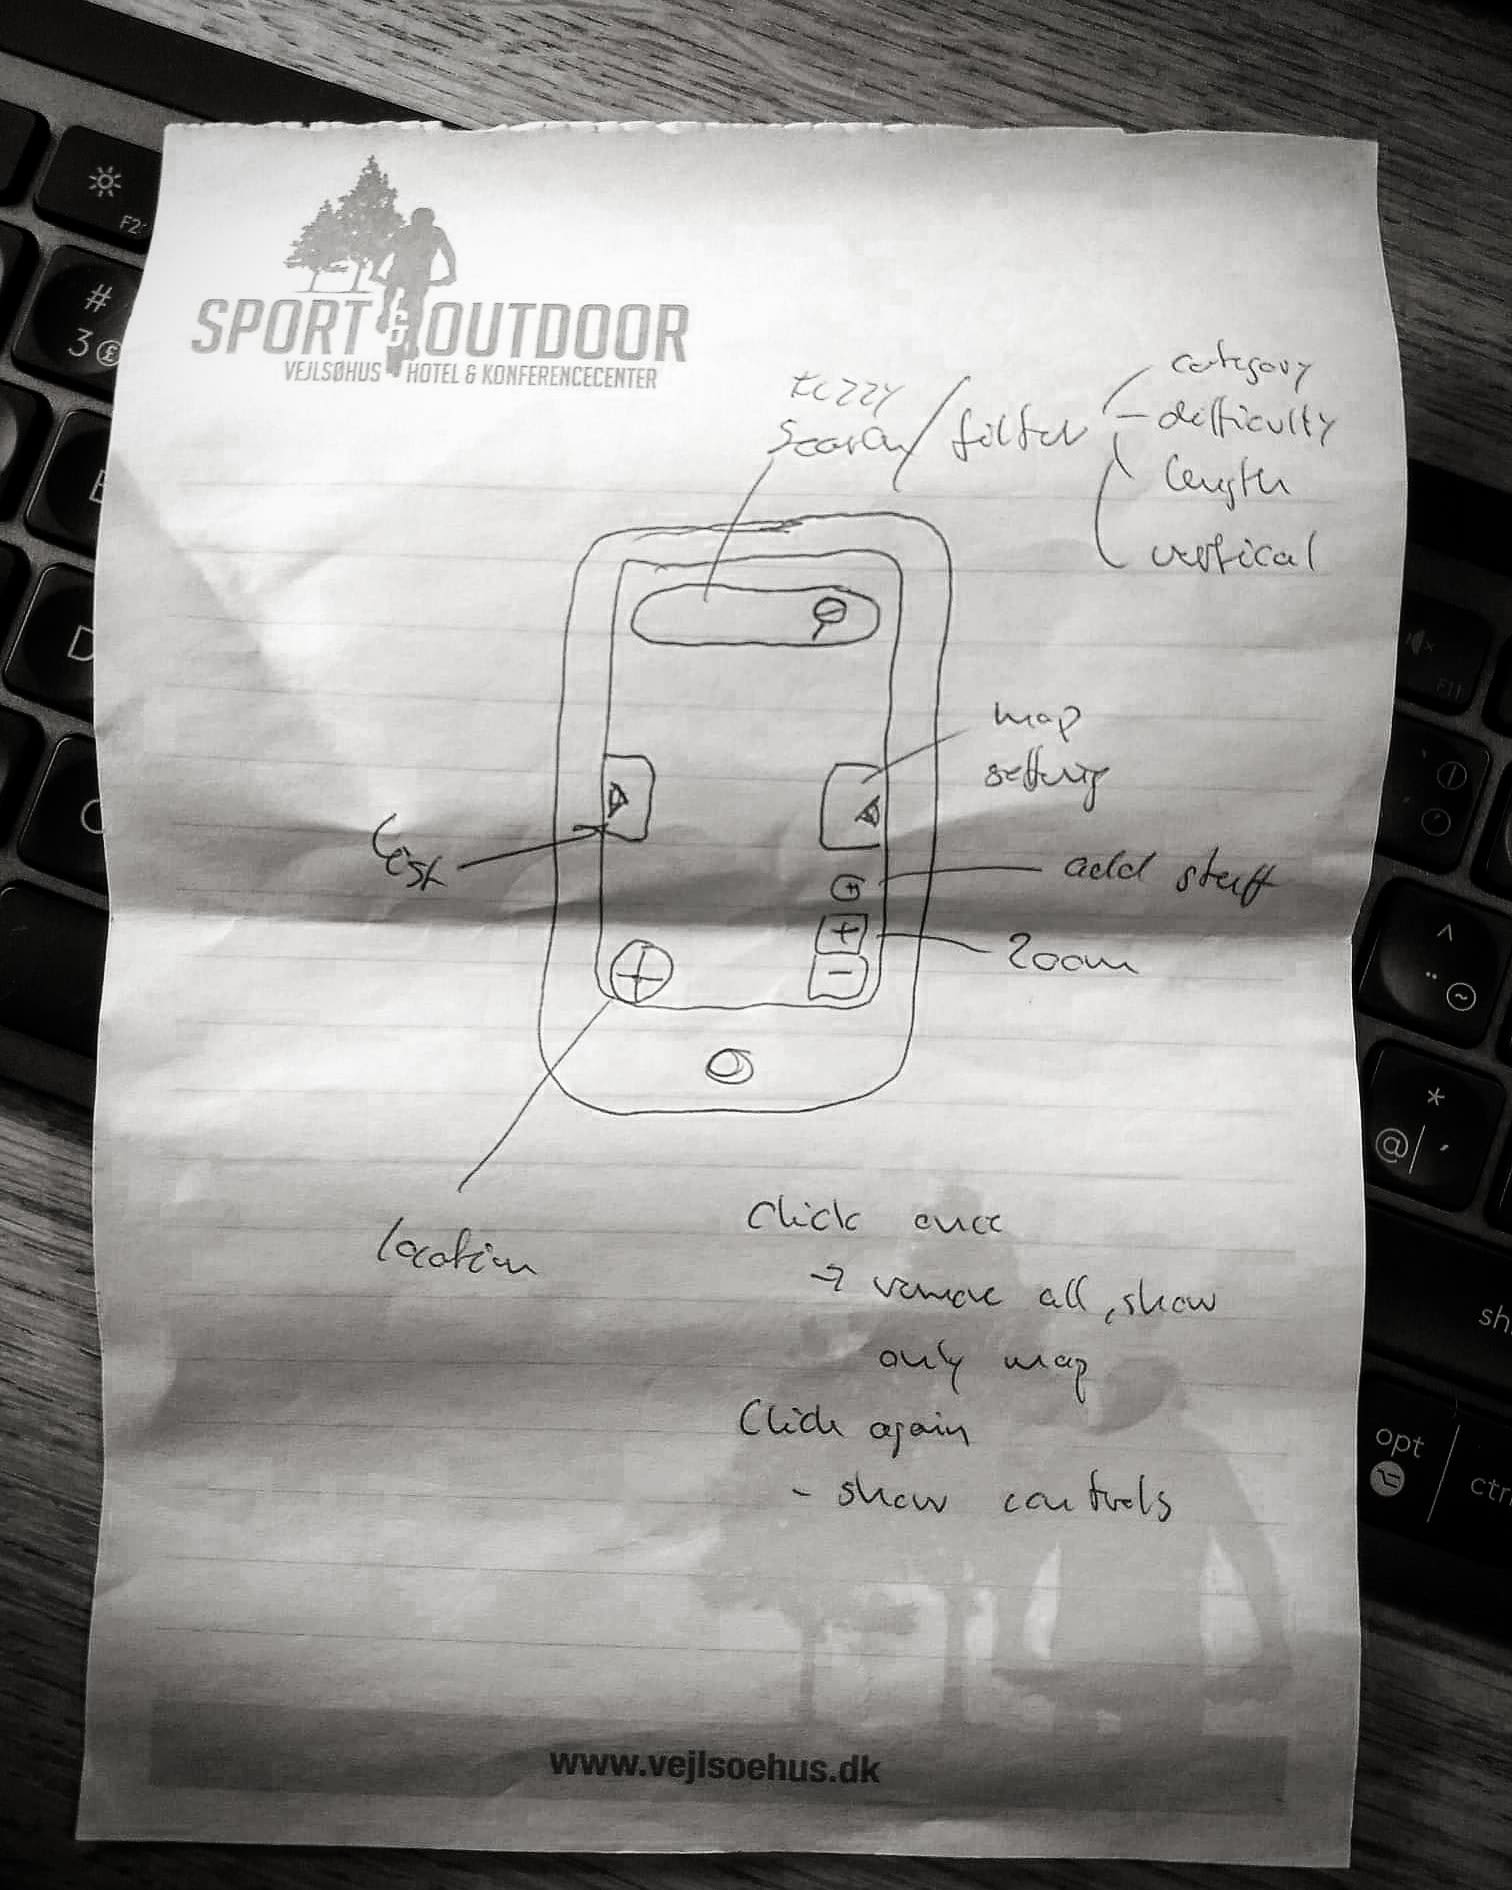 SPORT & OUTDOOR
VEJLSØHUS HOTEL & KONFERENCECENTER
fuzzy
search / filter
category
difficulty
length
vertical
map
setting
List
add stuff
+
+
-
Zoom
location
Click once
→ remove all, show
only map
Click again
- show controls
www.vejlsoehus.dk
F2
#
3 £
D
F11
^
¨ ~
*
@ '
sh
opt
ctr